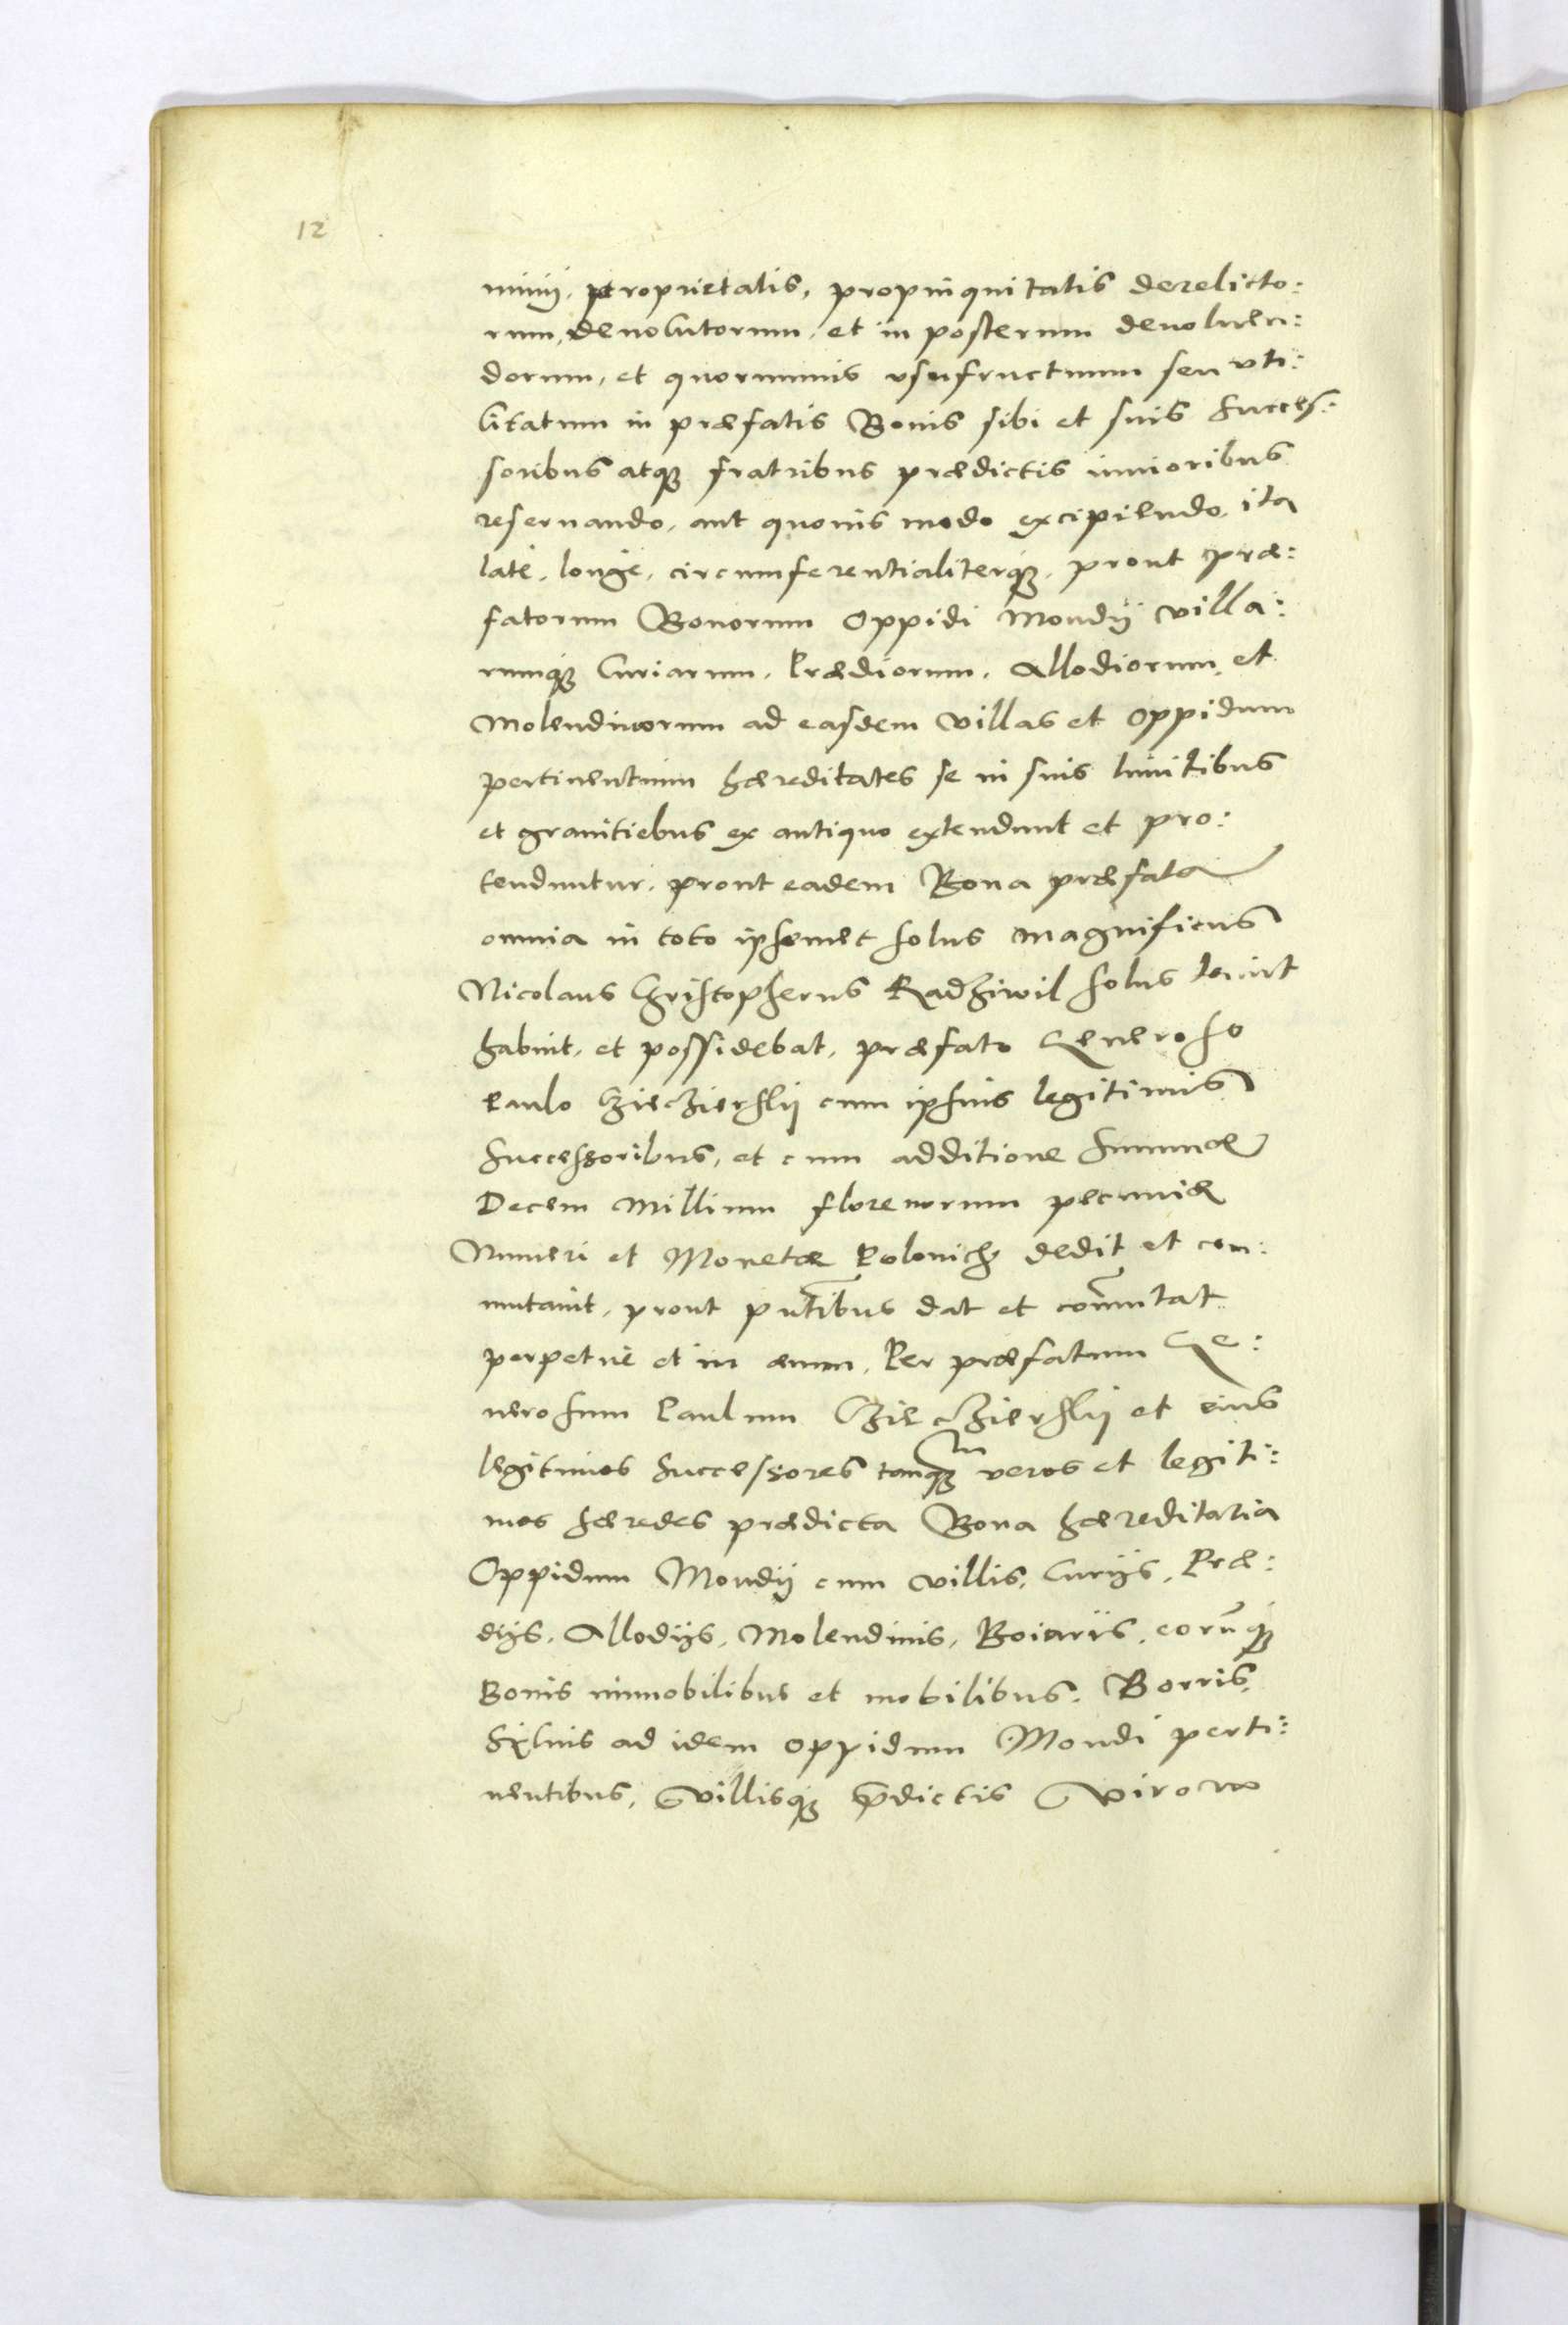 12
minij, proprietatis, propinquitatis derelicto:
rum, deuolutorum, et in posterum deuoluen:
dorum, et quorumuis vsufructuum seu vti:
litatum in præfatis Bonis sibi et suis succes:
soribus atqꝫ fratribus prædictis iunioribus
reseruando, aut quouis modo excipiendo, ita
latè, longè, circumferentialiterqꝫ, prout præ:
fatorum Bonorum Oppidi Mondij villa:
rumqꝫ Curiarum, Prædiorum, Allodiorum, et
Molendinorum ad easdem villas et Oppidum
pertinentium hæreditates se in suis limitibus
et granitiebus ex antiquo extendunt et pro:
tenduntur, prout eadem Bona præfata
omnia in toto ipsemet solus magnificus
Nicolaus Christopherus Radziwil solus tenuit
habuit, et possidebat, præfato Generoso
Paulo Cziecziersky cum ipsius legitimis
Successoribus, et cum additione summæ
Decem Millium florenorum pecuniæ
Numeri et Monetæ Polonicę dedit et com:
mutauit, prout pñtibus dat et com̃utat
perpetuè et in æuum, Per præfatum Ge:
nerosum Paulum Cziecziersky et eius
legitimos Successores tanqꝫm veros et legiti:
mos hæredes prædicta Bona hæreditaria
Oppidum Mondij cum villis, Curijs, Præ:
dijs, Allodijs, Molendinis, Boiariis, eorũqꝫ
Bonis immobilibus et mobilibus, Borris,
Syluis ad idem oppidum Mondi perti:
nentibus, Villisqꝫ p̃dictis Wirow